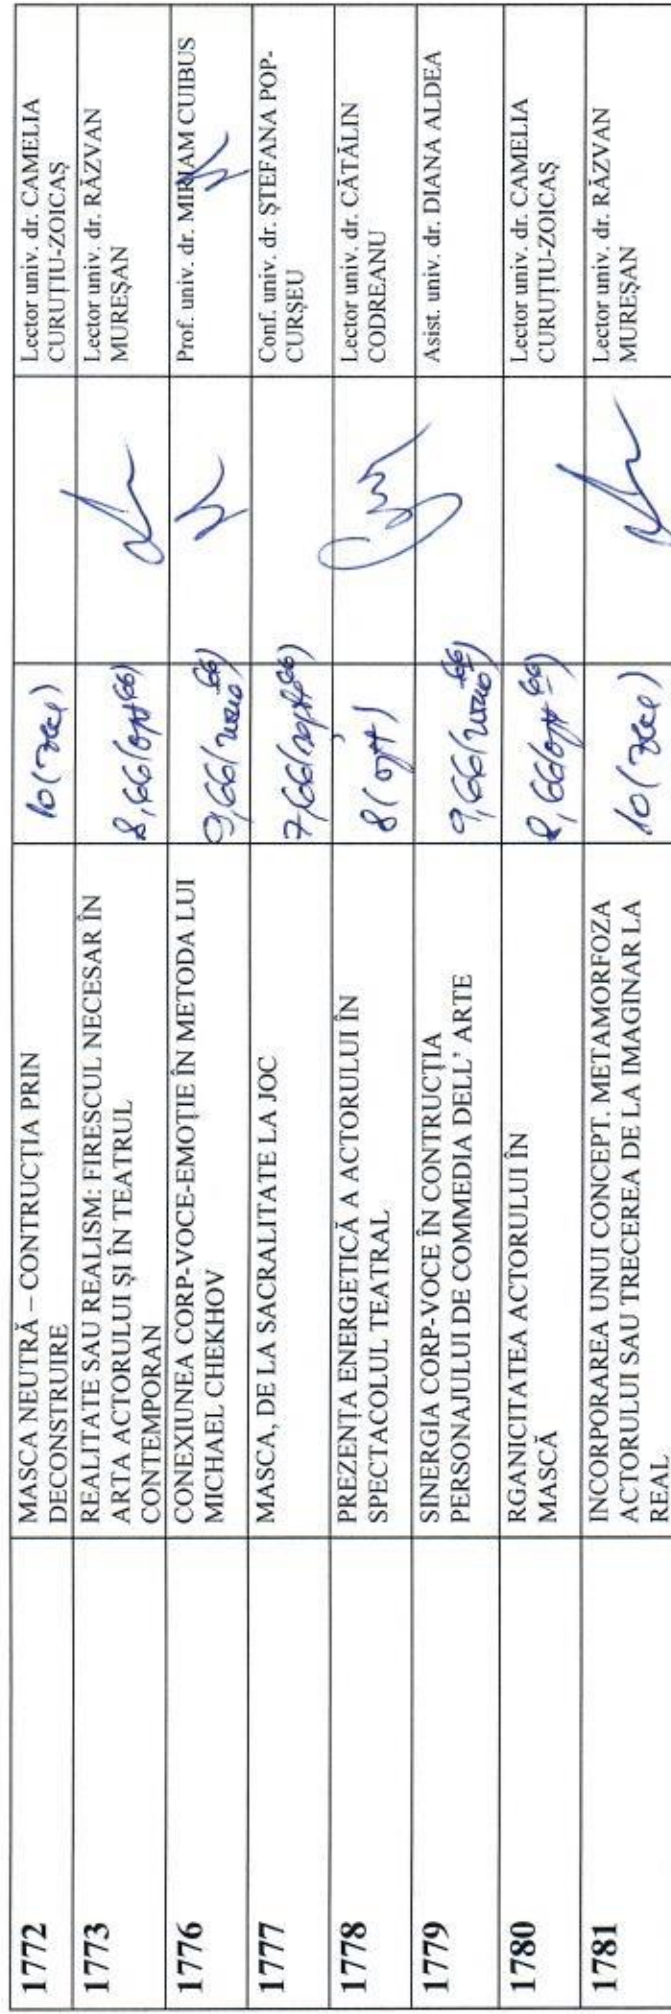 1772
MASCA NEUTRĂ – CONTRUCȚIA PRIN
DECONSTRUIRE
10 (zece)
Lector univ. dr. CAMELIA
CURUȚIU-ZOICAȘ
1773
REALITATE SAU REALISM: FIRESCUL NECESAR ÎN
ARTA ACTORULUI ȘI ÎN TEATRUL
CONTEMPORAN
8,66 (opt 66)
Lector univ. dr. RĂZVAN
MUREȘAN
1776
CONEXIUNEA CORP-VOCE-EMOȚIE ÎN METODA LUI
MICHAEL CHEKHOV
9,66 (nouă 66)
Prof. univ. dr. MIRIAM CUIBUS
1777
MASCA, DE LA SACRALITATE LA JOC
7,66 (șapte 66)
Conf. univ. dr. ȘTEFANA POP-
CURȘEU
1778
PREZENȚA ENERGETICĂ A ACTORULUI ÎN
SPECTACOLUL TEATRAL
8 (opt)
Lector univ. dr. CĂTĂLIN
CODREANU
1779
SINERGIA CORP-VOCE ÎN CONTRUCȚIA
PERSONAJULUI DE COMMEDIA DELL' ARTE
9,66 (nouă 66)
Asist. univ. dr. DIANA ALDEA
1780
RGANICITATEA ACTORULUI ÎN
MASCĂ
8,66 (opt 66)
Lector univ. dr. CAMELIA
CURUȚIU-ZOICAȘ
1781
INCORPORAREA UNUI CONCEPT. METAMORFOZA
ACTORULUI SAU TRECEREA DE LA IMAGINAR LA
REAL
10 (zece)
Lector univ. dr. RĂZVAN
MUREȘAN